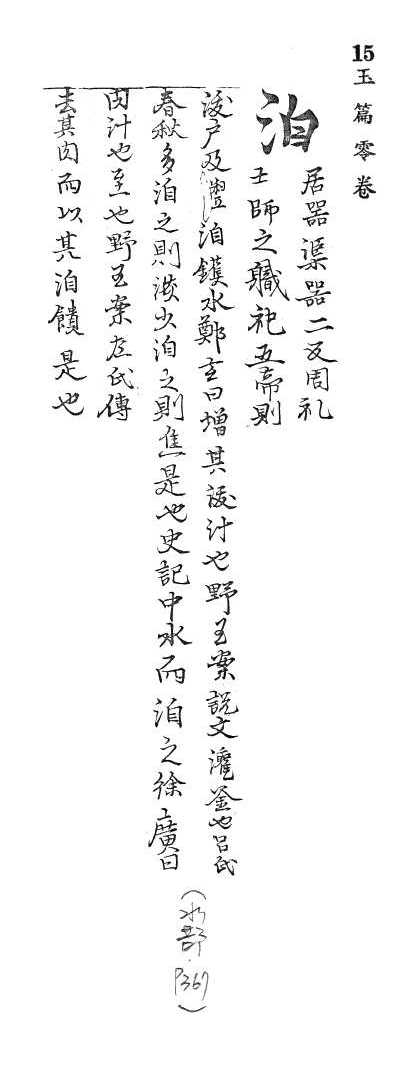 15玉篇零卷
洎
居器渠器二反周礼
士師之軄祀五帝則
洎鑊水鄭玄曰增其汁也野王案說文灌釜也呂氏
春秋多洎之則淡少洎之則焦是也史記中水而洎之徐廣曰
肉汁也至也野王案左氏傳
去其肉而以其洎饋是也
(水部.P367)